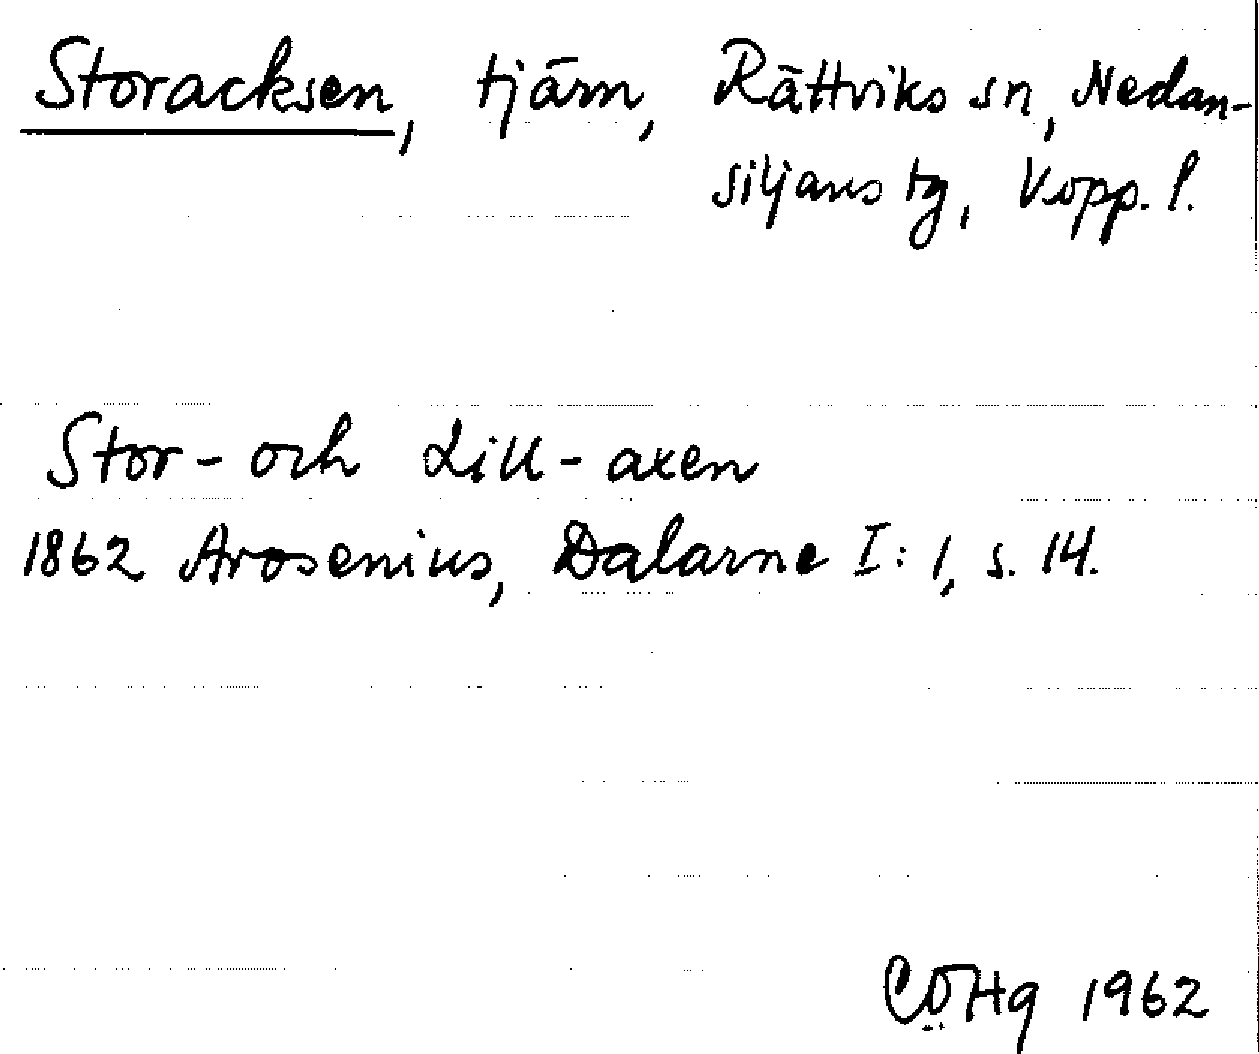 Storacksen, tjärn, Rättviks sn, Nedan-
siljans tg, Kopp. l.
Stor- och Lill-axen
1862 Arosenius, Dalarne I: 1, s. 14.
1962